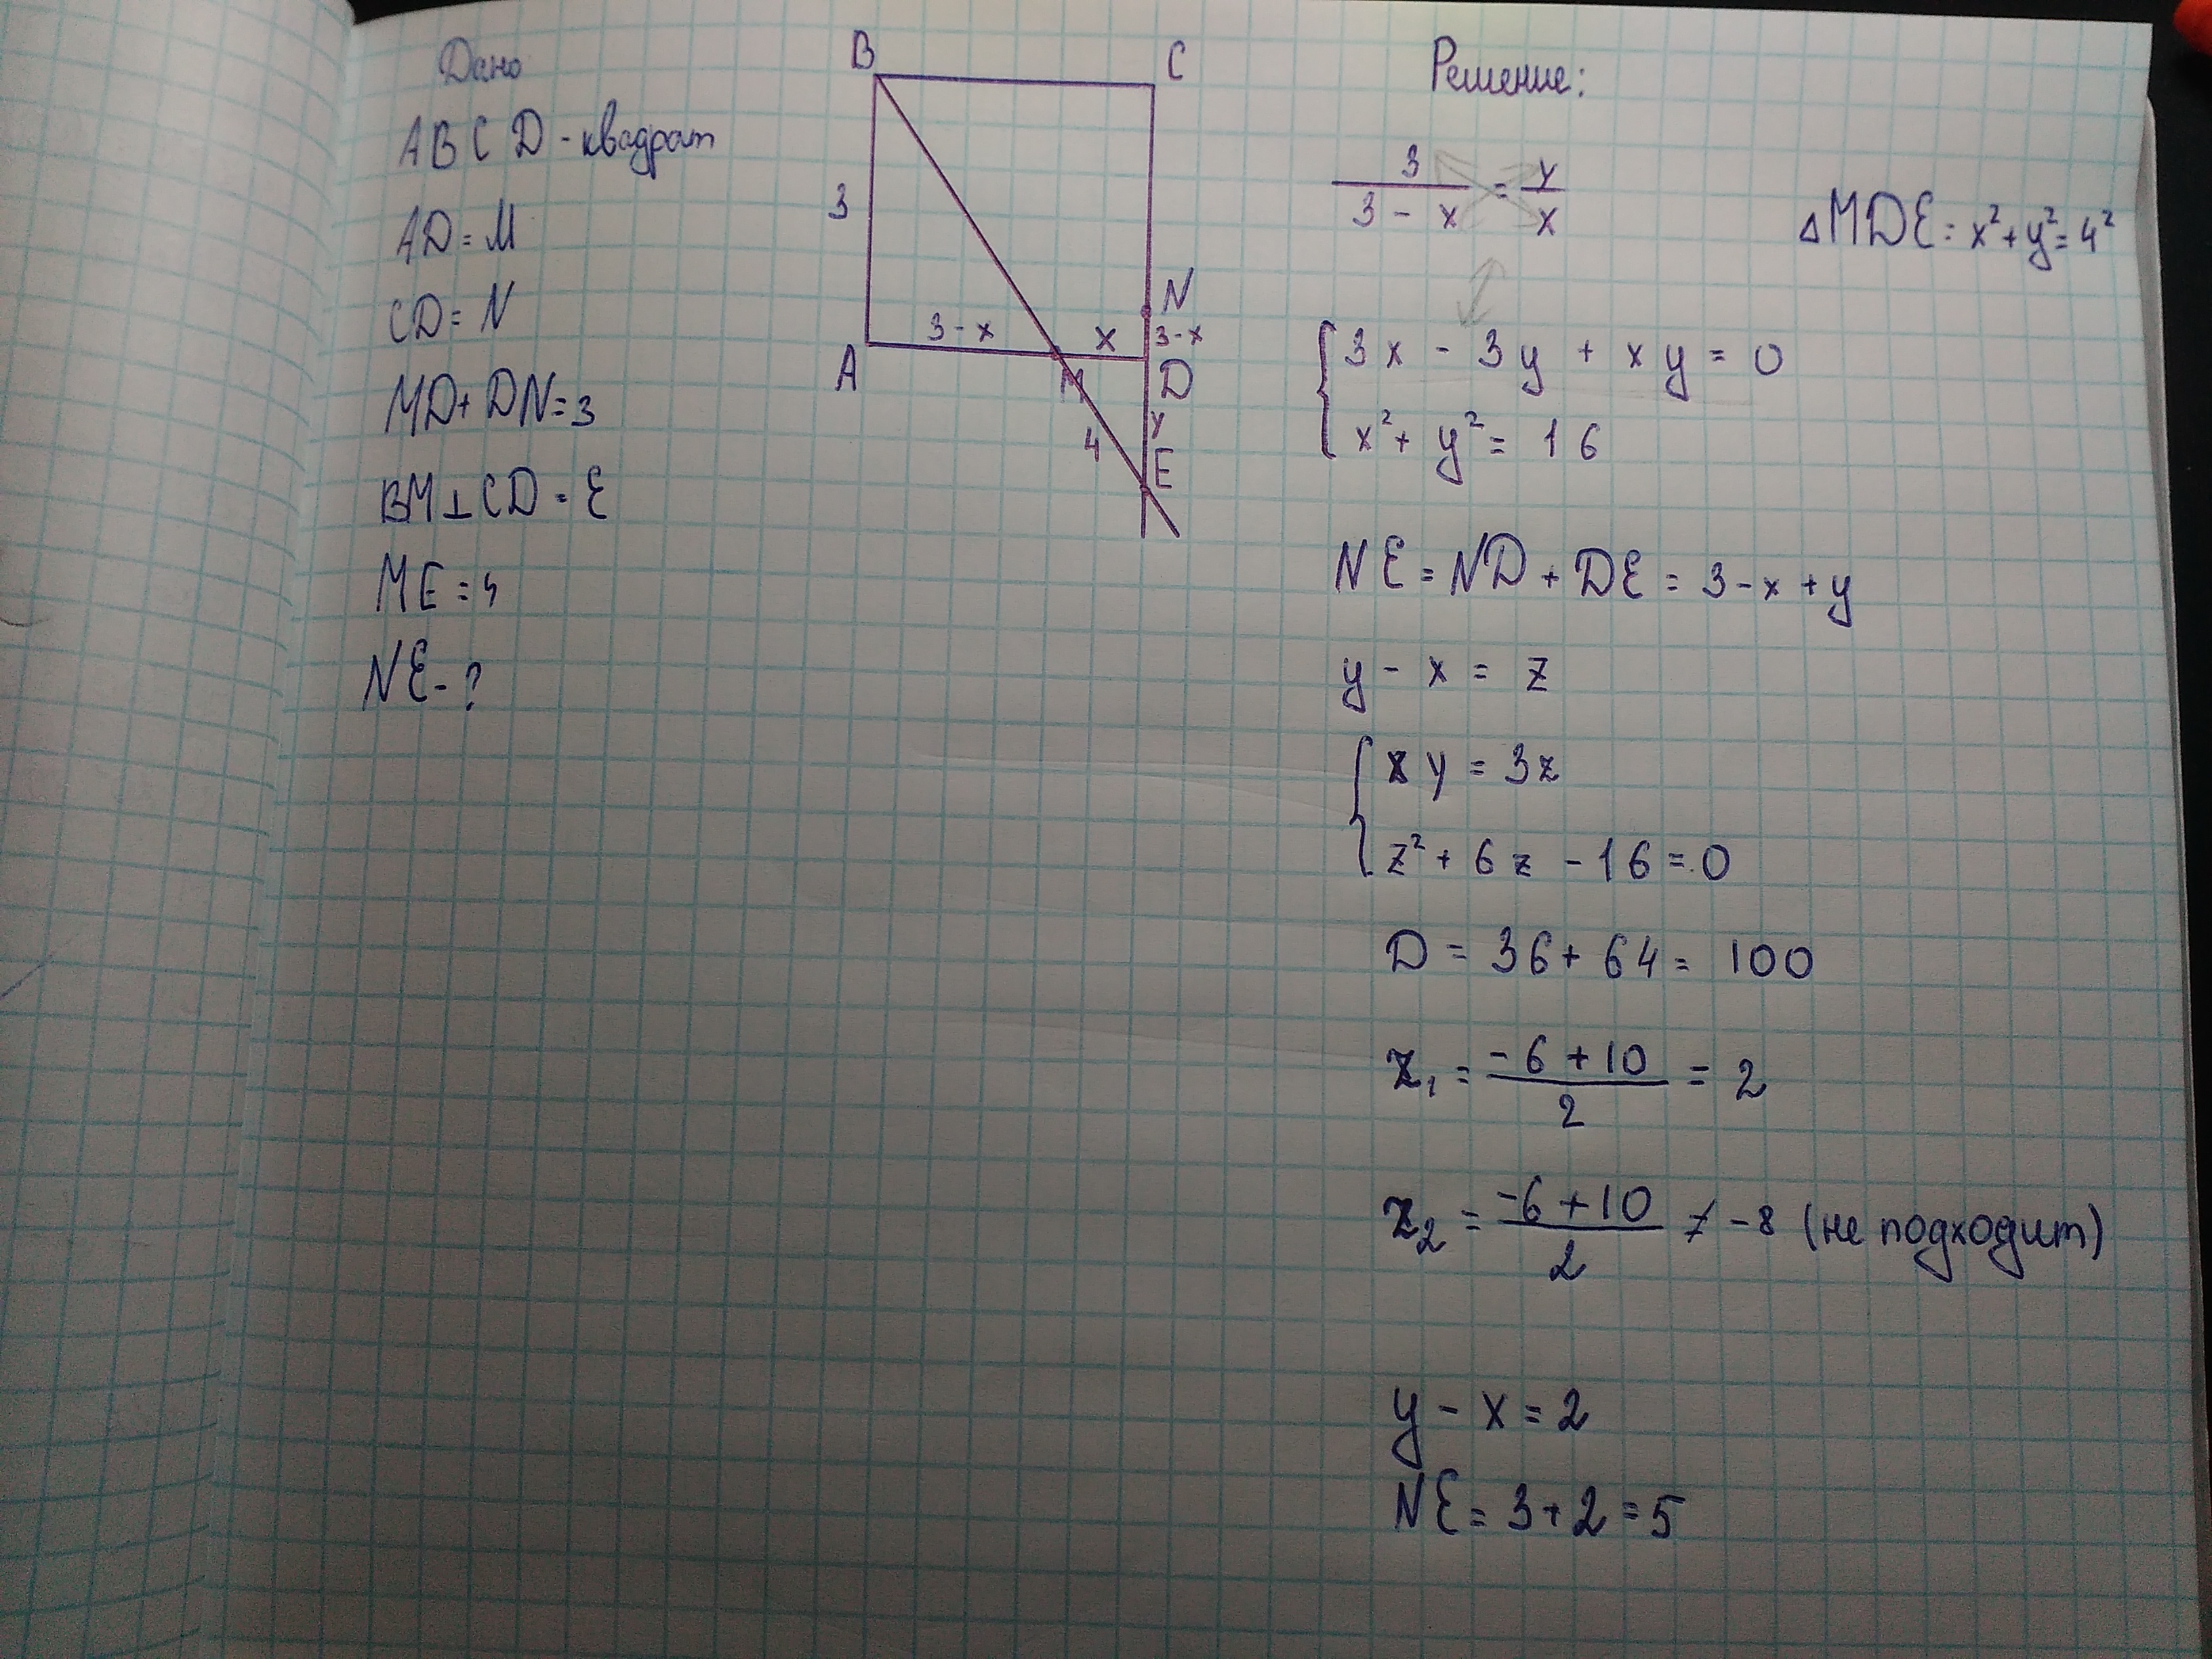 Дано
ABCD - квадрат
AD = M
CD = N
MD + DN = 3
BM ⊥ CD = E
ME = 4
NE - ?
B
C
3
N
3 - x
x
3-x
A
M
D
y
4
E
Решение:
3/(3 - x) = y/x
△MDE = x² + y² = 4²
{ 3x - 3y + xy = 0
x² + y² = 16
NE = ND + DE = 3 - x + y
y - x = z
{ xy = 3z
z² + 6z - 16 = 0
D = 36 + 64 = 100
z₁ = (-6 + 10)/2 = 2
z₂ = (-6 + 10)/2 ≠ -8 (не подходит)
y - x = 2
NE = 3 + 2 = 5